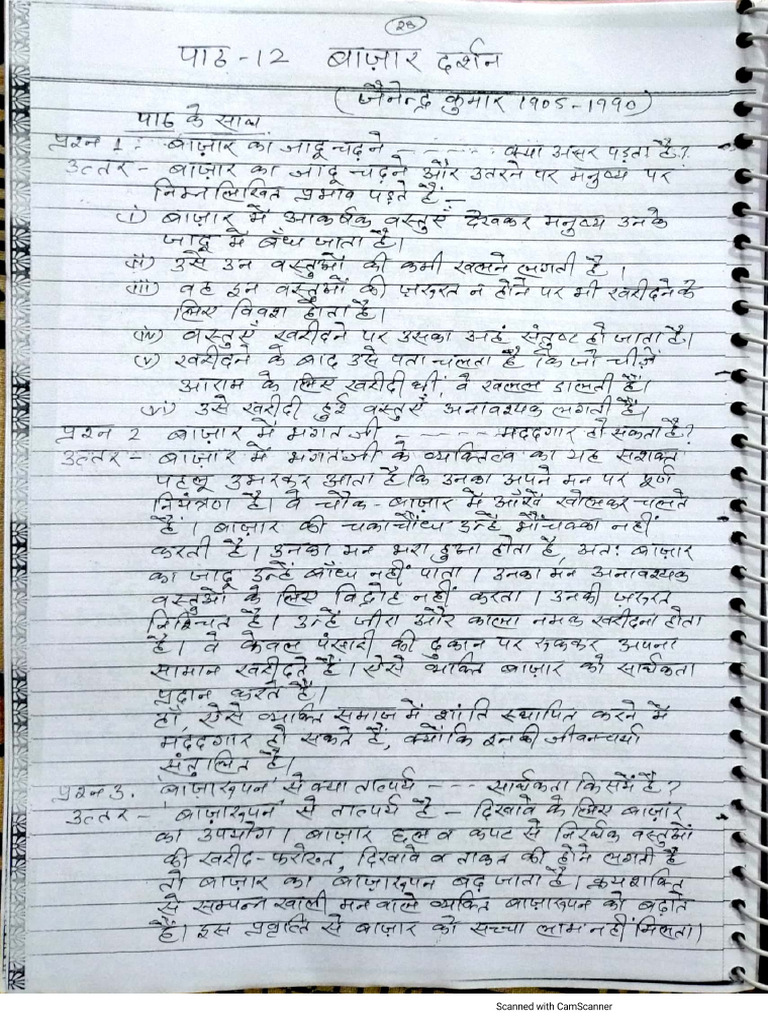 23
पाठ -12 बाज़ार दर्शन
(जैनेन्द्र कुमार 1905-1990)
पाठ के साथ
प्रश्न 1. बाज़ार का जादू चढ़ने ------ क्या असर पड़ता है?
उत्तर - बाज़ार का जादू चढ़ने और उतरने पर मनुष्य पर
निम्नलिखित प्रभाव पड़ते हैं -
(i) बाज़ार में आकर्षक वस्तुएँ देखकर मनुष्य उनके
जादू में बँध जाता है।
(ii) उसे उन वस्तुओं की कमी खलने लगती है।
(iii) वह इन वस्तुओं की ज़रूरत न होने पर भी खरीदने के
लिए विवश होता है।
(iv) वस्तुएँ खरीदने पर उसका अहं संतुष्ट हो जाता है।
(v) खरीदने के बाद उसे पता चलता है कि जो चीज़ें
आराम के लिए खरीदी थीं, वे खलल डालती हैं।
(vi) उसे खरीदी हुई वस्तुएँ अनावश्यक लगती हैं।
प्रश्न 2 बाज़ार में भगत जी ----- मददगार हो सकता है?
उत्तर - बाज़ार में भगतजी के व्यक्तित्व का यह सशक्त
पहलू उभरकर आता है कि उनका अपने मन पर पूर्ण
नियंत्रण है। वे चौक-बाज़ार में आँखें खोलकर चलते
हैं। बाज़ार की चकाचौंध उन्हें भौंचक्का नहीं
करती है। उनका मन भरा हुआ होता है, अतः बाज़ार
का जादू उन्हें बाँध नहीं पाता। उनका मन अनावश्यक
वस्तुओं के लिए विद्रोह नहीं करता। उनकी ज़रूरत
निश्चित है। उन्हें जीरा और काला नमक खरीदना होता
है। वे केवल पंसारी की दुकान पर रुककर अपना
सामान खरीदते हैं। ऐसे व्यक्ति बाज़ार को सार्थकता
प्रदान करते हैं।
हाँ, ऐसे व्यक्ति समाज में शांति स्थापित करने में
मददगार हो सकते हैं, क्योंकि इनकी जीवनचर्या
संतुलित है।
प्रश्न 3. 'बाज़ारूपन' से क्या तात्पर्य --- सार्थकता किसमें है?
उत्तर - 'बाज़ारूपन' से तात्पर्य है - दिखावे के लिए बाज़ार
का उपयोग। बाज़ार छल व कपट से निरर्थक वस्तुओं
की खरीद-फरोख्त, दिखावे व ताकत की होने लगती है
तो बाज़ार का बाज़ारूपन बढ़ जाता है। क्रयशक्ति
से सम्पन्न खाली मन वाले व्यक्ति बाज़ारूपन को बढ़ाते
हैं। इस प्रवृत्ति से बाज़ार को सच्चा लाभ नहीं मिलता।
Scanned with CamScanner